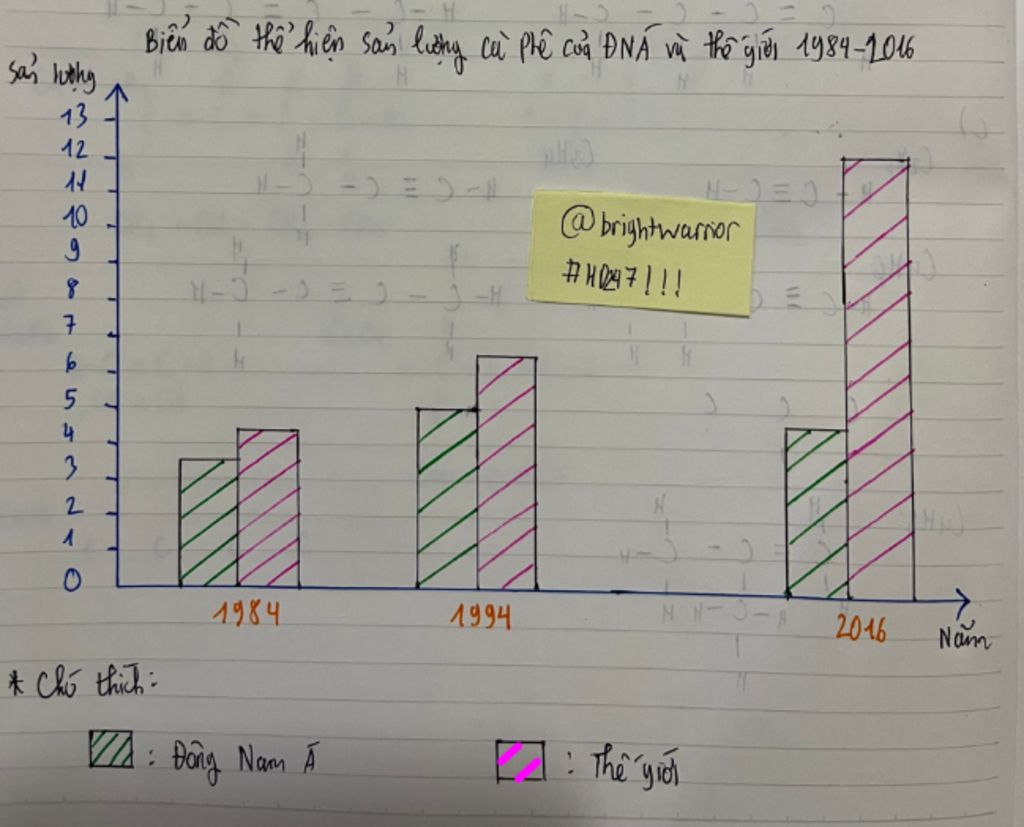 Biểu đồ thể hiện sản lượng cà phê của ĐNÁ và thế giới 1984-2016
Sản lượng
13
12
11
10
9
8
7
6
5
4
3
2
1
0
@brightwarrior
#HD247!!!
1984
1994
2016
Năm
* Chú thích:
: Đông Nam Á
: Thế giới